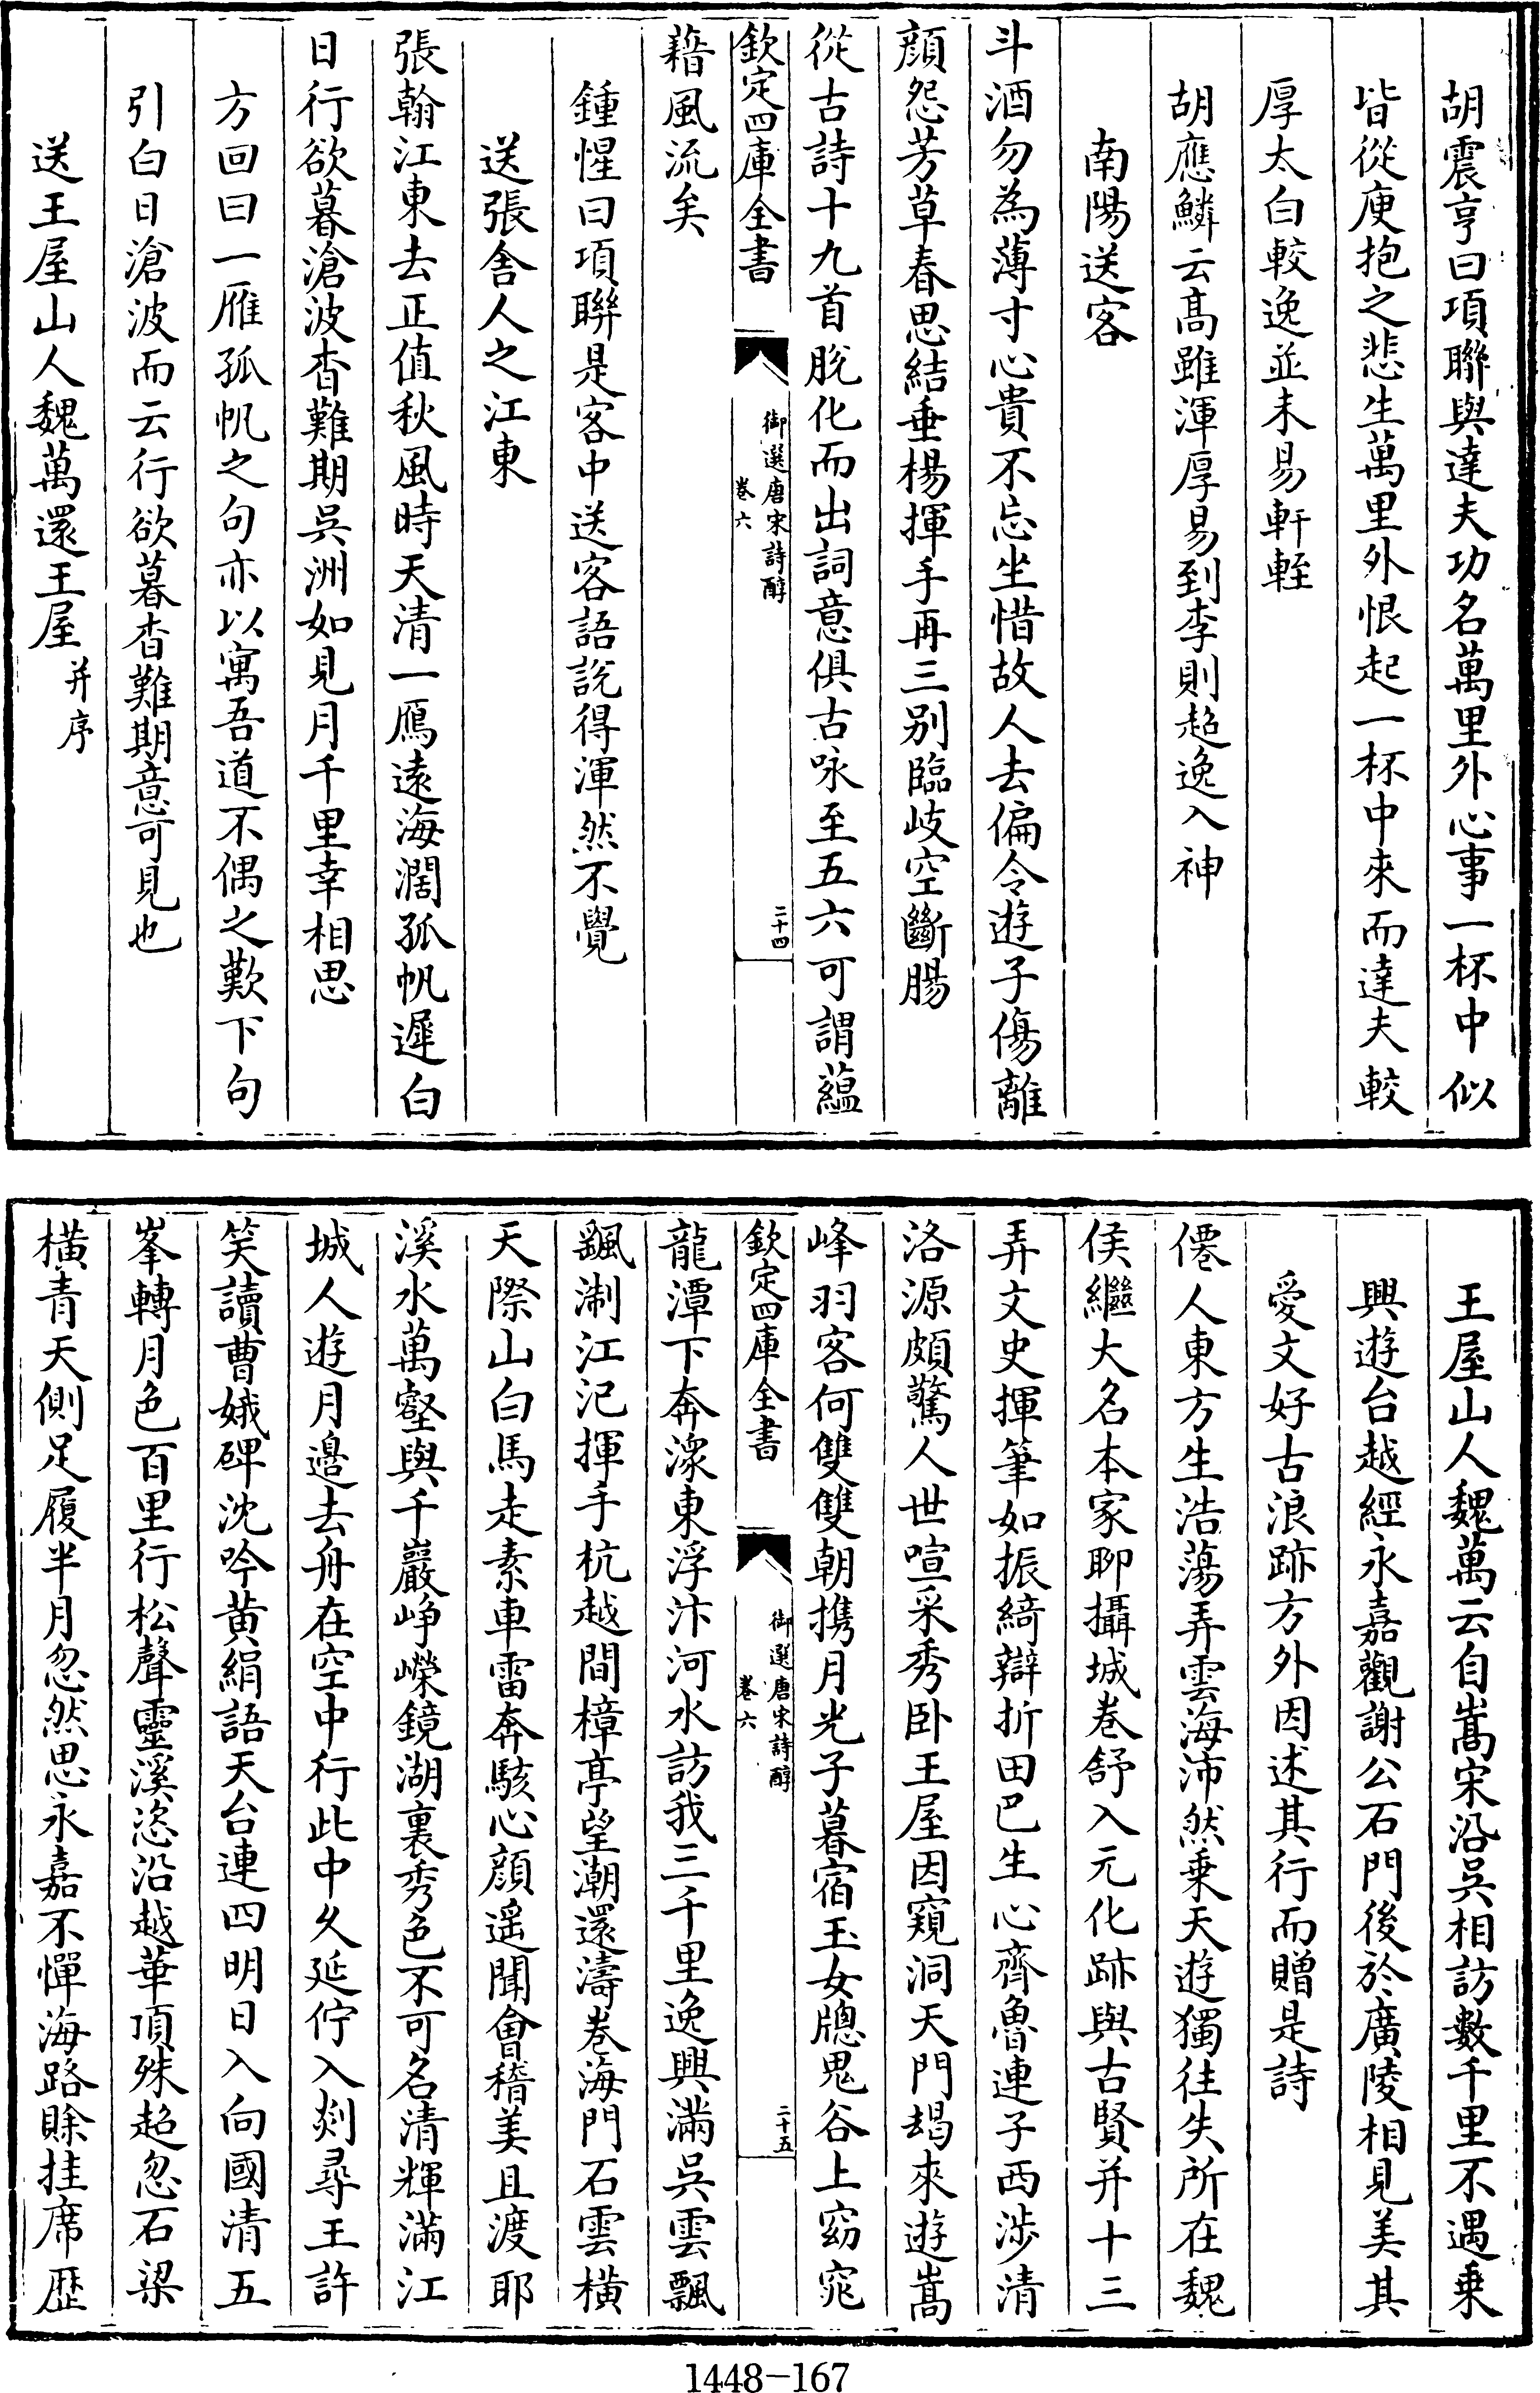 胡震亨曰項聯與達夫功名萬里外心事一杯中似
皆從庾抱之悲生萬里外恨起一杯中來而達夫較
厚太白較逸並未易軒輊
胡應鱗云髙雖渾厚易到李則超逸入神
南陽送客
斗酒勿為薄寸心貴不忘坐惜故人去偏令遊子傷離
顔怨芳草春思結垂楊揮手再三别臨岐空斷腸
從古詩十九首脫化而出詞意俱古咏至五六可謂蘊
欽定四庫全書
御選唐宋詩醇
卷六
二十四
藉風流矣
鍾惺曰項聯是客中送客語說得渾然不覺
送張舍人之江東
張翰江東去正值秋風時天清一鴈遠海濶孤帆遲白
日行欲暮滄波杳難期吳洲如見月千里幸相思
方回曰一雁孤帆之句亦以寓吾道不偶之歎下句
引白日滄波而云行欲暮杳難期意可見也
送王屋山人魏萬還王屋并序
王屋山人魏萬云自嵩宋沿吳相訪數千里不遇乗
興遊台越經永嘉觀謝公石門後於廣陵相見美其
愛文好古浪跡方外因述其行而贈是詩
僊人東方生浩蕩弄雲海沛然乗天遊獨往失所在魏
侯繼大名本家聊攝城卷舒入元化跡與古賢并十三
弄文史揮筆如振綺辯折田巴生心齊魯連子西涉清
洛源頗驚人世喧采秀卧王屋因窺洞天門朅來遊嵩
峰羽客何雙雙朝携月光子暮宿玉女牕鬼谷上窈窕
欽定四庫全書
御選唐宋詩醇
卷六
二十五
龍潭下奔潨東浮汴河水訪我三千里逸興滿吳雲飄
颻淛江汜揮手杭越間樟亭望潮還濤卷海門石雲橫
天際山白馬走素車雷奔駭心顔遥聞會稽美且渡耶
溪水萬壑與千巖崢嶸鏡湖裏秀色不可名清輝滿江
城人遊月邉去舟在空中行此中久延佇入剡尋王許
笑讀曹娥碑沈吟黄絹語天台連四明日入向國清五
峯轉月色百里行松聲靈溪恣沿越華頂殊超忽石梁
橫青天側足履半月忽然思永嘉不憚海路賖挂席歴
1448-167